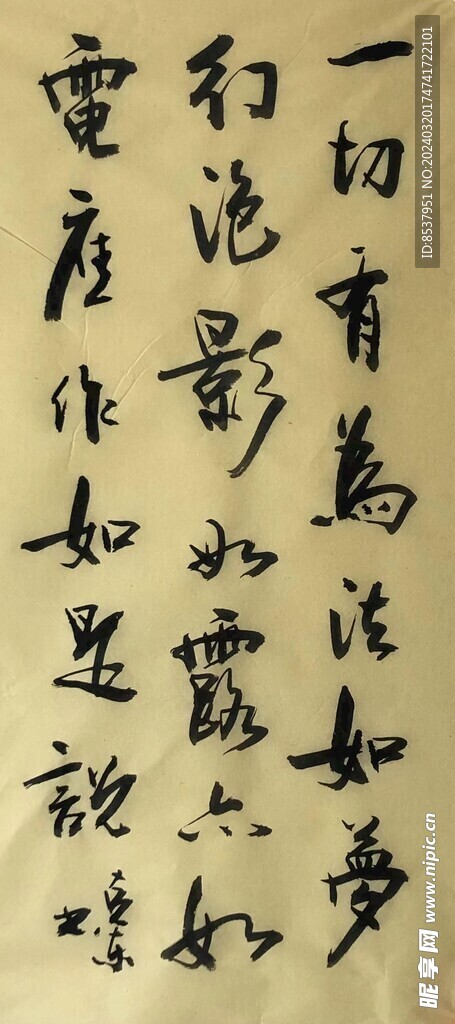 一切有為法如夢
幻泡影如露亦如
電應作如是說
ID:8537951 NO:20240320174741722101
昵享网 www.nipic.cn